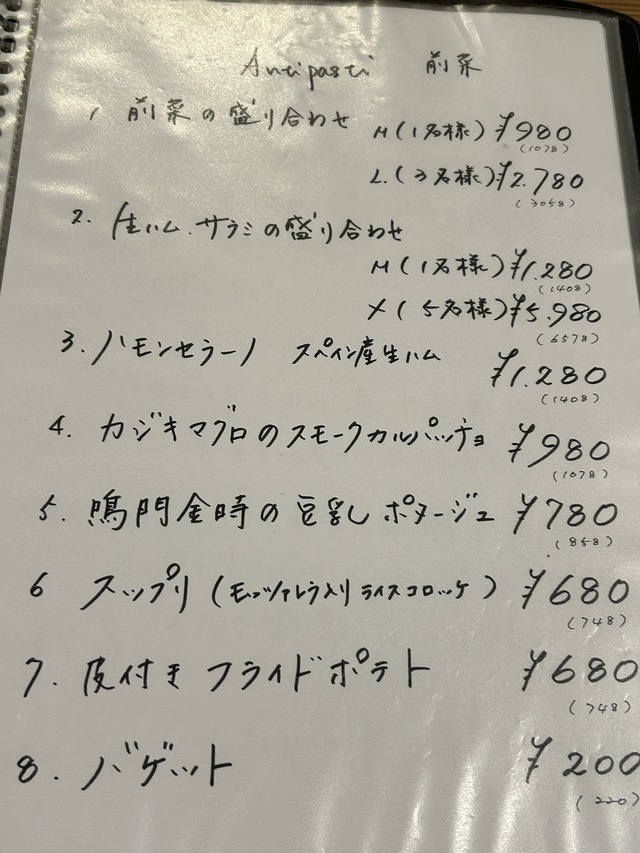 Antipasti 前菜
1 前菜の盛り合わせ M(1名様) ¥980
(1078)
L.(3名様) ¥2.780
(3058)
2. 生ハム.サラミの盛り合わせ
M(1名様) ¥1.280
(1408)
X(5名様) ¥5.980
(6578)
3. ハモンセラーノ スペイン産生ハム ¥1.280
(1408)
4. カジキマグロのスモークカルパッチョ ¥980
(1078)
5. 鳴門金時の豆乳ポタージュ ¥780
(858)
6 スップリ(モッツァレラ入りライスコロッケ) ¥680
(748)
7. 皮付きフライドポテト ¥680
(748)
8. バゲット ¥200
(220)